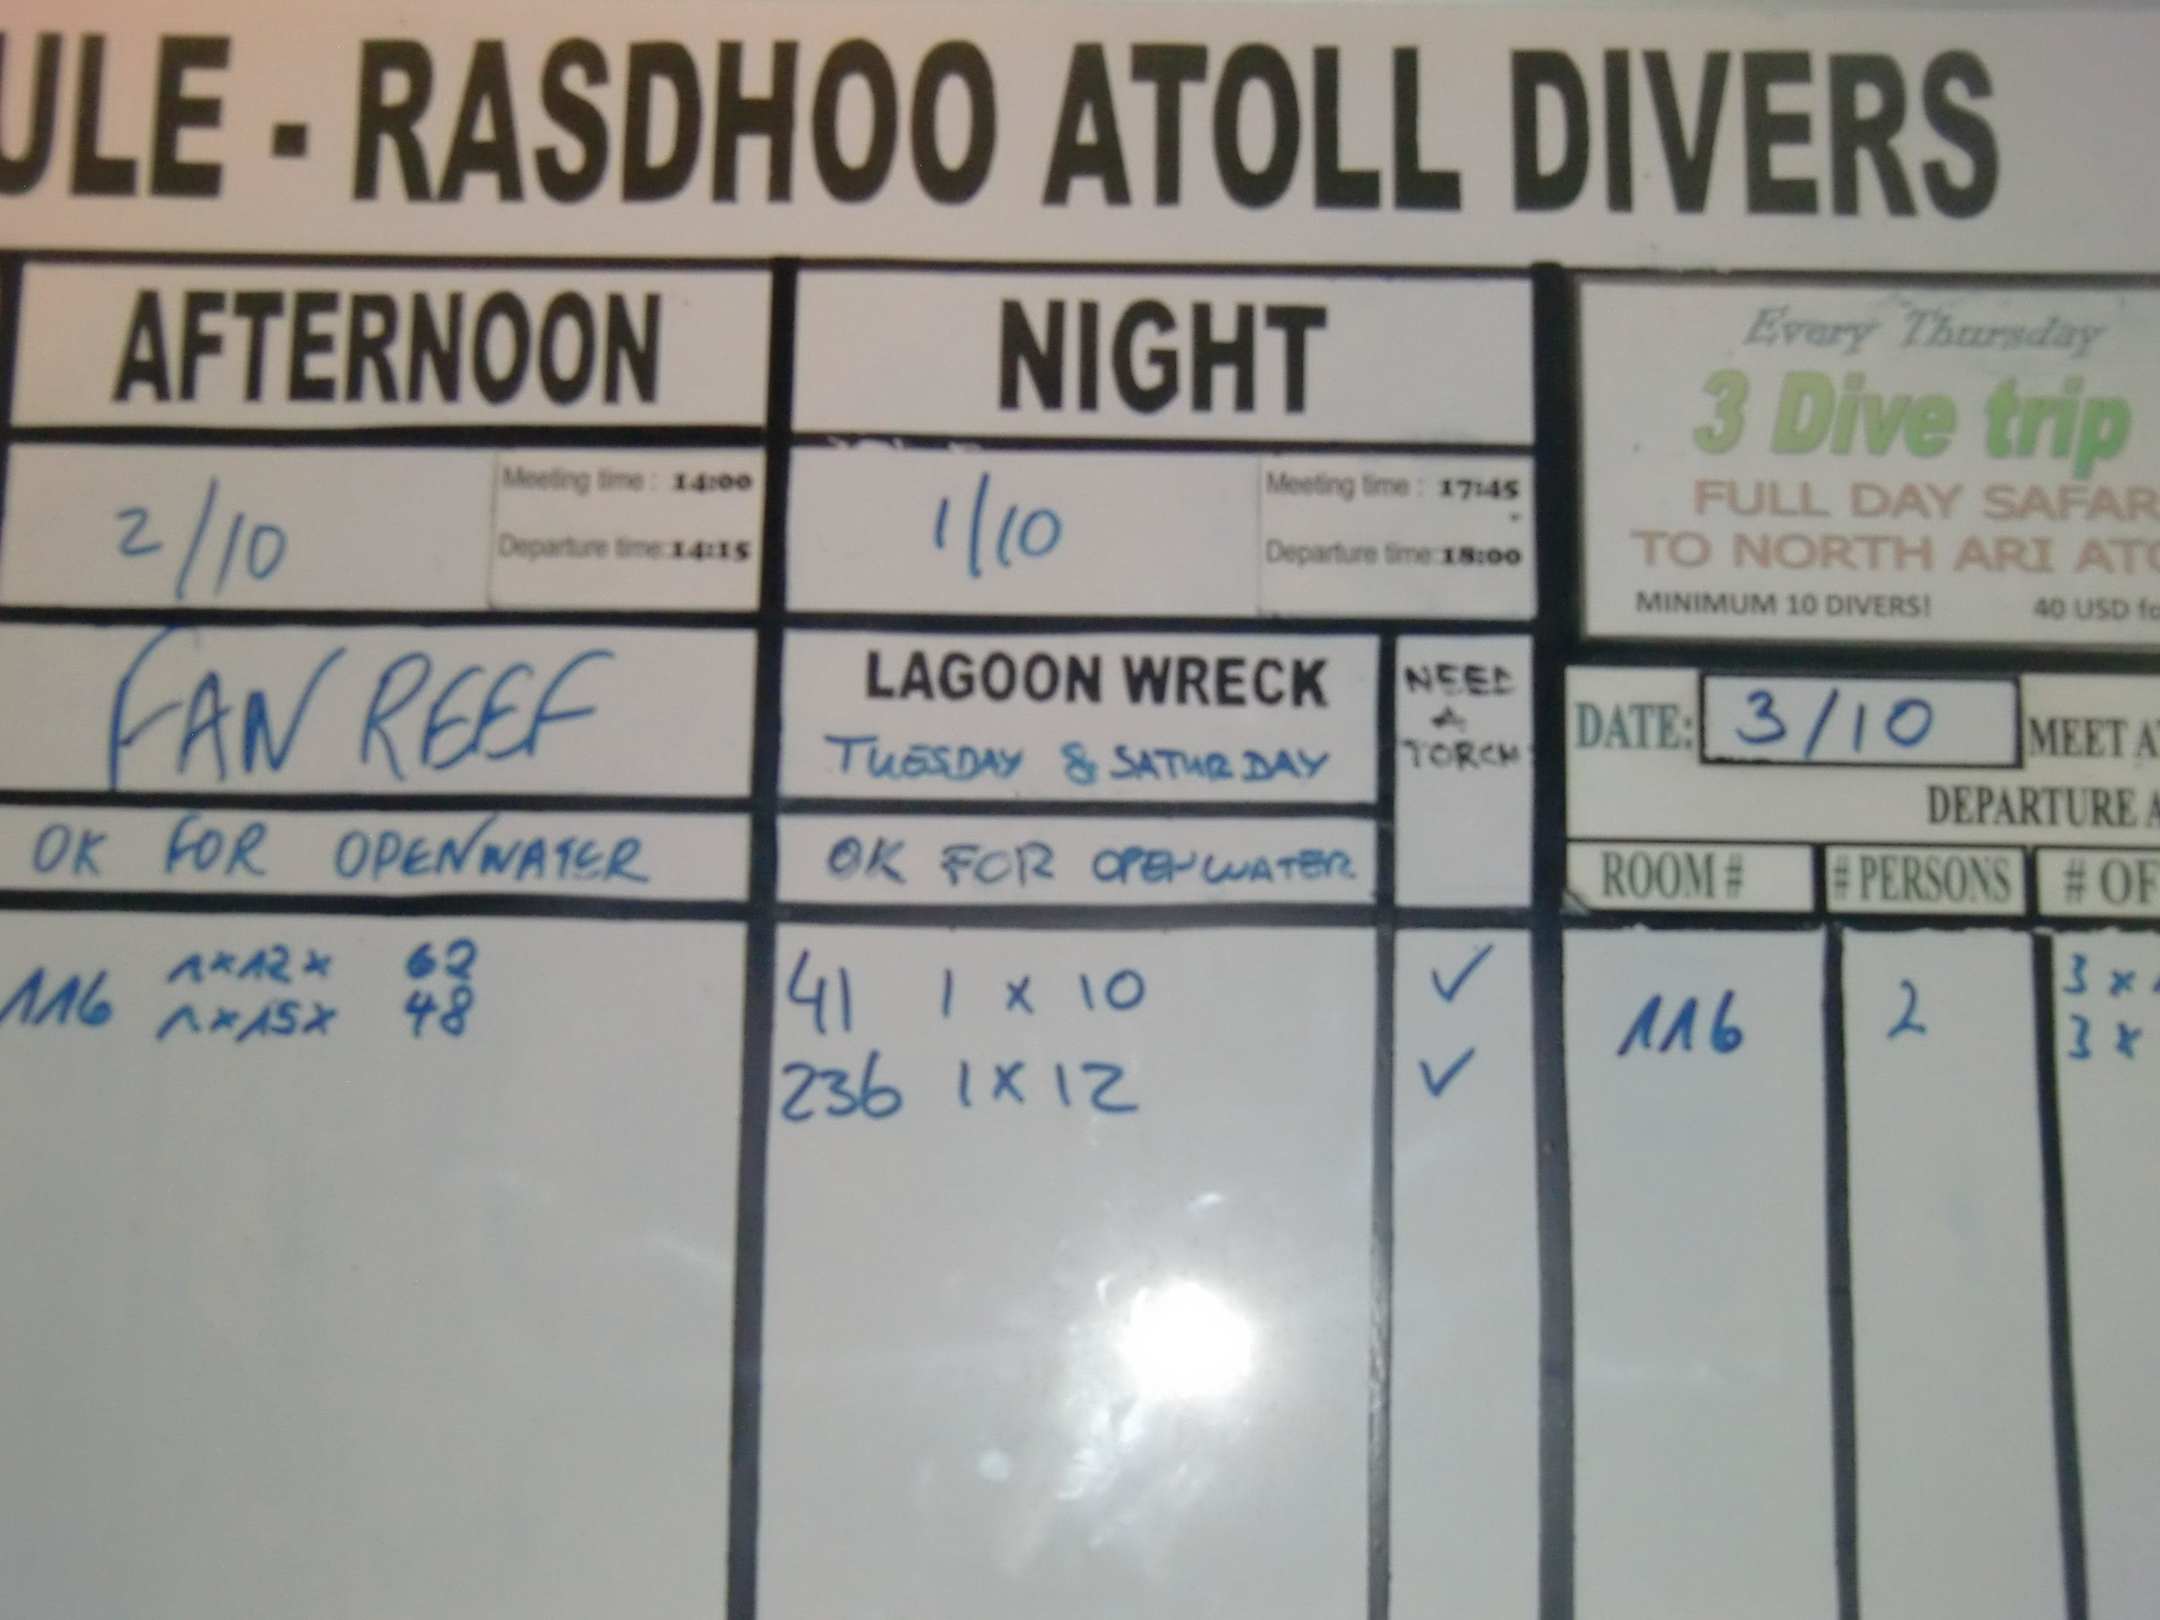 ULE - RASDHOO ATOLL DIVERS
AFTERNOON
2/10
Meeting time : 14:00
Departure time:14:15
FAN REEF
OK FOR OPENWATER
116 1x12x 62
1x15x 48
NIGHT
1/10
Meeting time : 17:45
Departure time:18:00
LAGOON WRECK
TUESDAY & SATURDAY
NEED
A
TORCH
OK FOR OPENWATER
41 1 x 10 ✓
236 1 x 12 ✓
Every Thursday
3 Dive trip
FULL DAY SAFAR
TO NORTH ARI ATO
MINIMUM 10 DIVERS! 40 USD fo
DATE: 3/10 MEET A
DEPARTURE A
ROOM # # PERSONS # OF
116 2 3 x
3 x